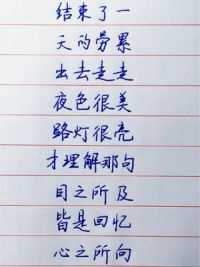 结束了一
天的劳累
出去走走
夜色很美
路灯很亮
才理解那句
目之所及
皆是回忆
心之所向